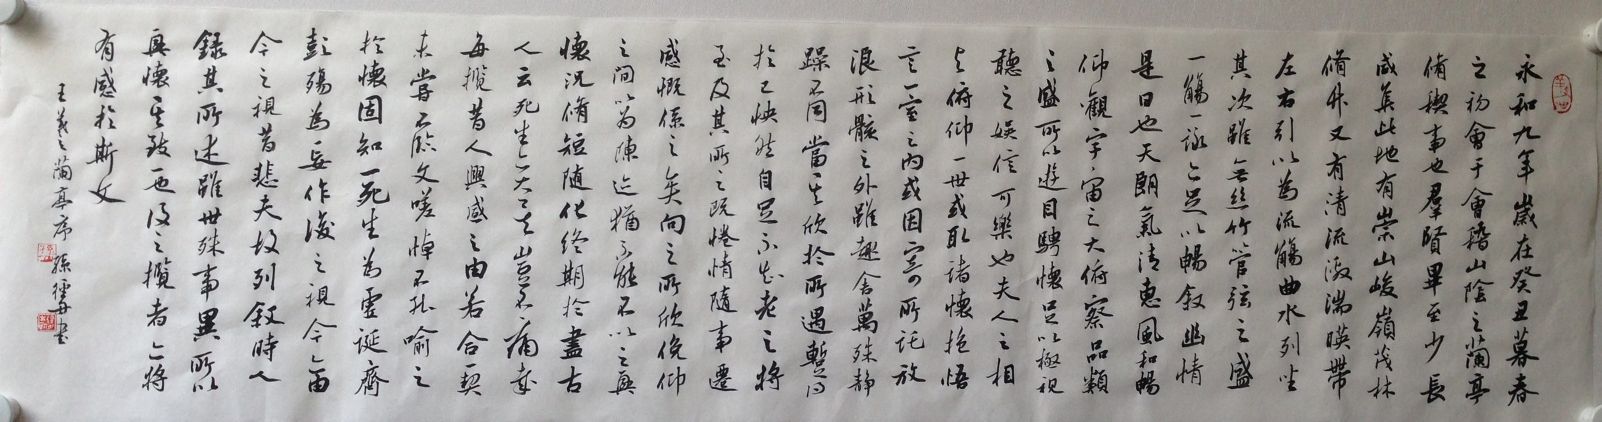 永和九年歲在癸丑暮春
之初會于會稽山陰之蘭亭
脩禊事也羣賢畢至少長
咸集此地有崇山峻嶺茂林
脩竹又有清流激湍暎帶
左右引以為流觴曲水列坐
其次雖無絲竹管弦之盛
一觴一詠亦足以暢敘幽情
是日也天朗氣清惠風和暢
仰觀宇宙之大俯察品類
之盛所以遊目騁懷足以極視
聽之娛信可樂也夫人之相
與俯仰一世或取諸懷抱悟
言一室之內或因寄所託放
浪形骸之外雖趣舍萬殊靜
躁不同當其欣於所遇蹔得
於己怏然自足不知老之將
至及其所之既惓情隨事遷
感慨係之矣向之所欣俛仰
之間以為陳迹猶不能不以之興
懷況脩短隨化終期於盡古
人云死生亦大矣豈不痛哉
每攬昔人興感之由若合一契
未嘗不臨文嗟悼不能喻之
於懷固知一死生為虛誕齊
彭殤為妄作後之視今亦由
今之視昔悲夫故列敘時人
錄其所述雖世殊事異所以
興懷其致一也後之攬者亦將
有感於斯文
王羲之蘭亭序 孫 書